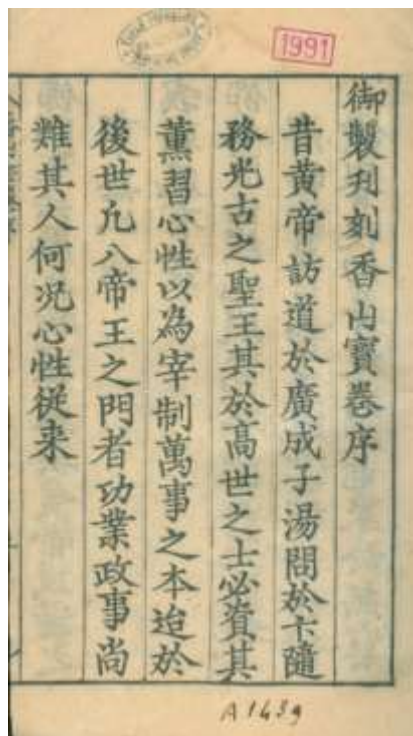 御製刊刻香山寶卷序
昔黄帝訪道於廣成子湯問於卞隨
務光古之聖王其於髙世之士必資其
薰習心性以為宰制萬事之本迨於
後世凢八帝王之門者功業政事尚
難其人何况心性従来
1991
A 1639